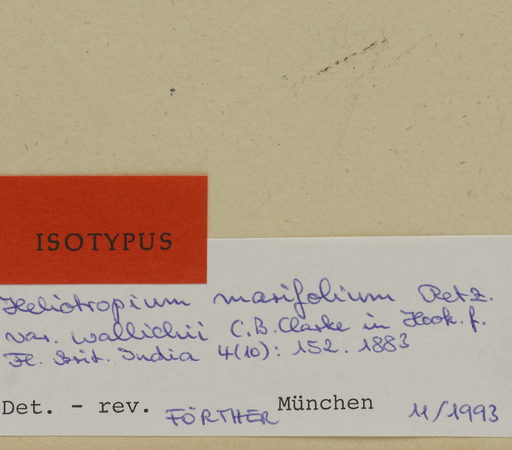 ISOTYPUS
Heliotropium marifolium Retz.
var. wallichii C.B. Clarke in Hook. f.
Fl. Brit. India 4(10): 152. 1883
Det. - rev. FÖRTHER München 11/1993